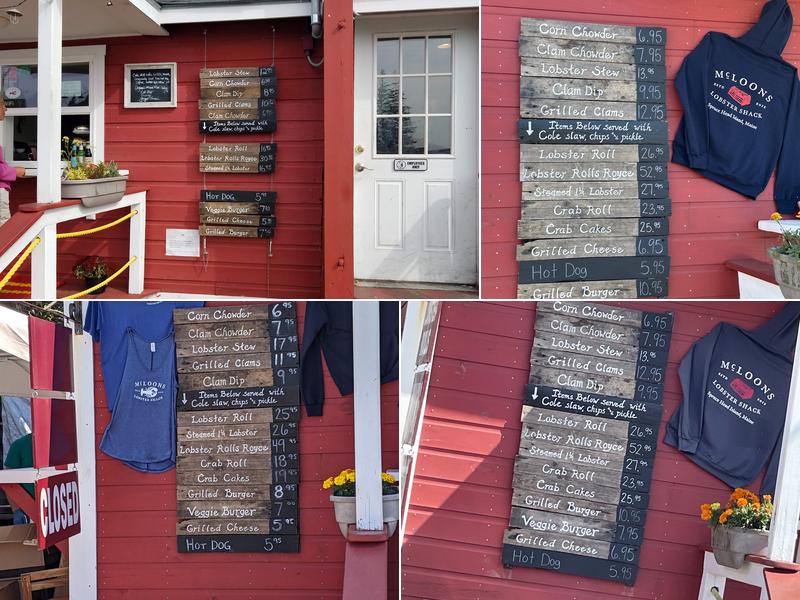 Lobster Stew 12
Corn Chowder 6
Clam Dip 8
Grilled Clams 10
Clam Chowder
↓ Items Below served with
Cole slaw, chips 'n pickle
Lobster Roll 16
Lobster Rolls Royce 30
Steamed 1¼ Lobster
Hot Dog 5
Veggie Burger 7
Grilled Cheese 5
Grilled Burger 7
EMPLOYEES
ONLY
Corn Chowder 6.95
Clam Chowder 7.95
Lobster Stew 18.95
Clam Dip 9.95
Grilled Clams 12.95
↓ Items Below served with
Cole slaw, chips 'n pickle
Lobster Roll 26.95
Lobster Rolls Royce 52.95
Steamed 1¼ Lobster 27.95
Crab Roll 23.95
Crab Cakes 25.95
Grilled Cheese 6.95
Hot Dog 5.95
Grilled Burger 10.95
McLOONS
LOBSTER SHACK
Spruce Head Island, Maine
CLOSED
McLOONS
LOBSTER SHACK
Corn Chowder 6.95
Clam Chowder 7.95
Lobster Stew 17.95
Grilled Clams 11.95
Clam Dip 9.95
↓ Items Below served with
Cole slaw, chips 'n pickle
Lobster Roll 25.95
Steamed 1¼ Lobster 26.95
Lobster Rolls Royce 49.95
Crab Roll 18.95
Crab Cakes 19.95
Grilled Burger 8.95
Veggie Burger 7.00
Grilled Cheese 5.95
Hot Dog 5.95
Corn Chowder 6.95
Clam Chowder 7.95
Lobster Stew
Grilled Clams 12.95
Clam Dip 9.95
↓ Items Below served with
Cole slaw, chips 'n pickle
Lobster Roll 26.95
Lobster Rolls Royce 52.95
Steamed 1¼ Lobster 27.95
Crab Roll 23.95
Crab Cakes 25.95
Grilled Burger 10.95
Veggie Burger 7.95
Grilled Cheese 6.95
Hot Dog 5.95
McLOONS
LOBSTER SHACK
Spruce Head Island, Maine